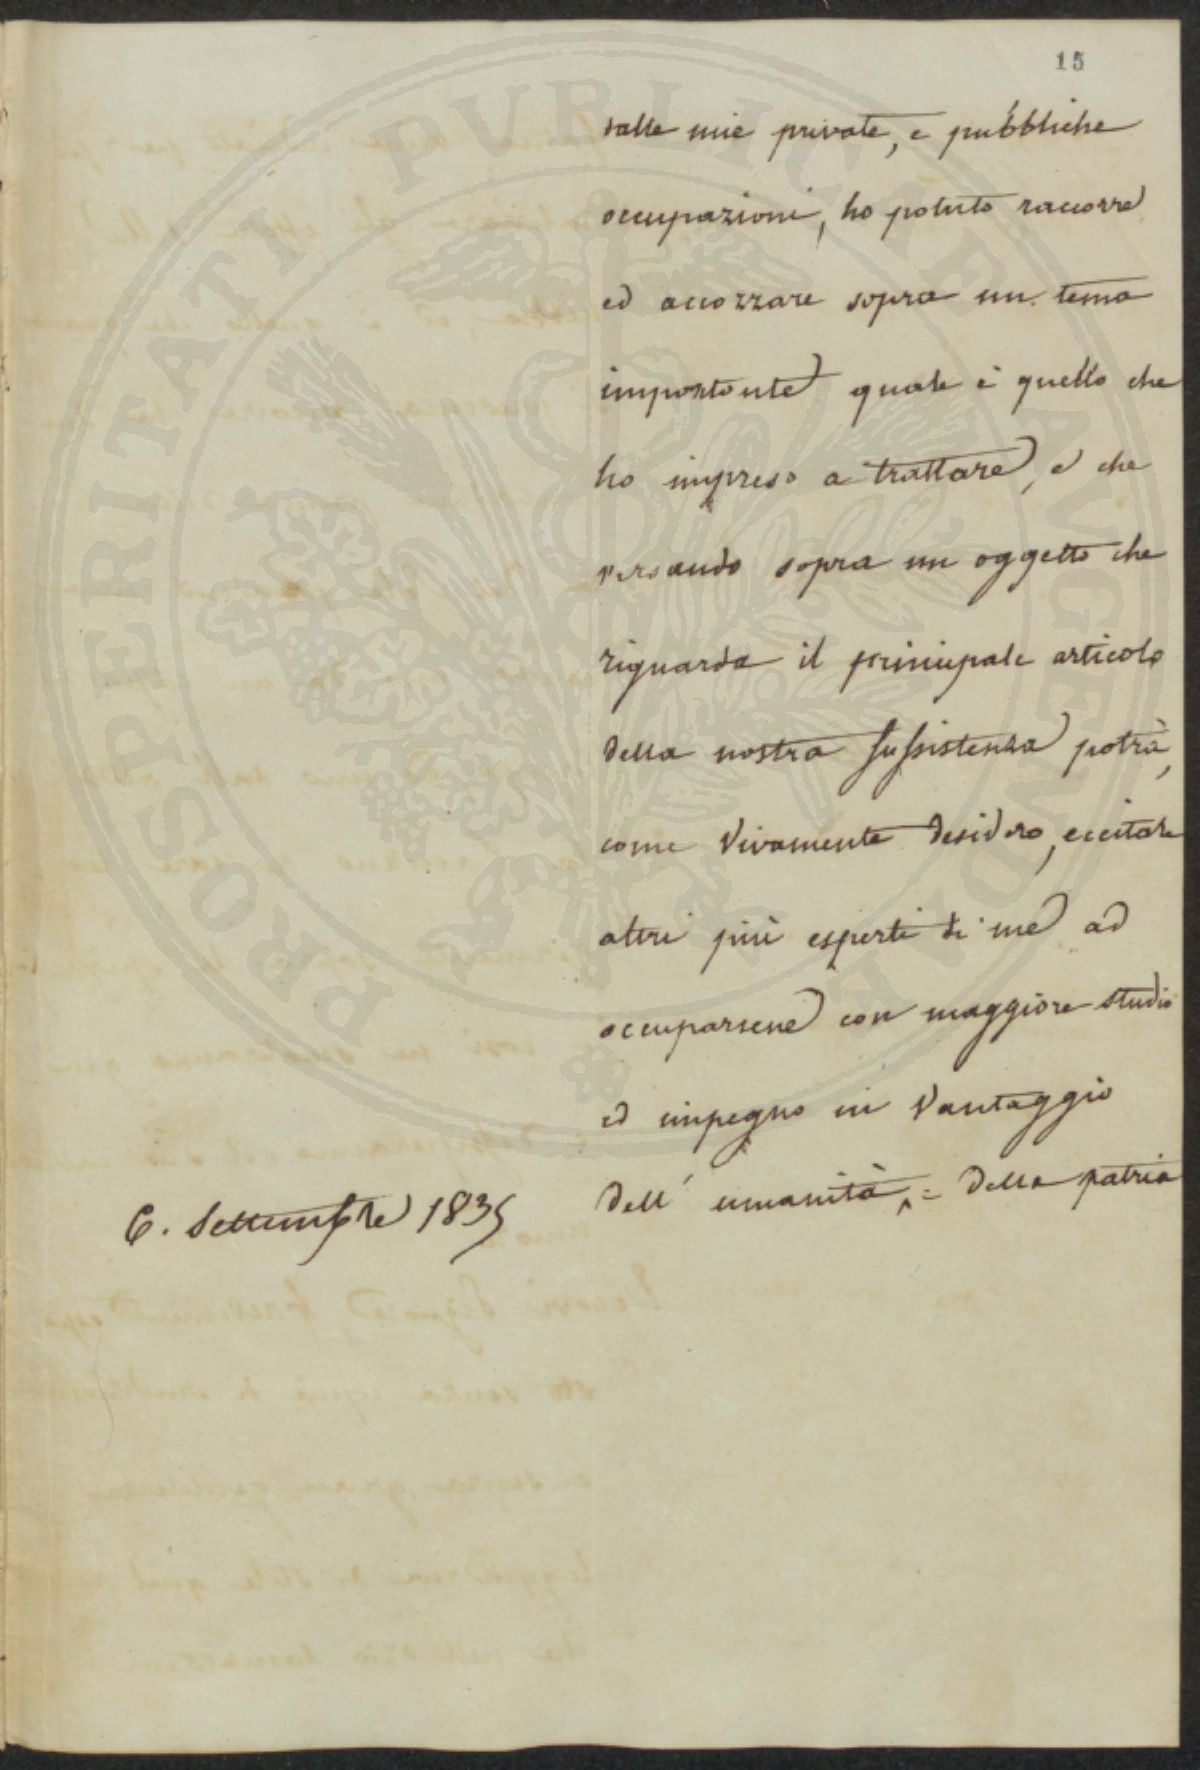 15
dalle mie private, e pubbliche
occupazioni, ho potuto raccorre
ed accozzare sopra un tema
importante quale è quello che
ho impreso a trattare, e che
versando sopra un oggetto che
riguarda il principale articolo
della nostra sussistenza potrà,
come vivamente desidero, eccitare
altri più esperti di me ad
occuparsene con maggiore studio
ed impegno in vantaggio
dell' umanità, e della patria
6. Settembre 1835
PROSPERITATI PUBLICAE AUGENDAE